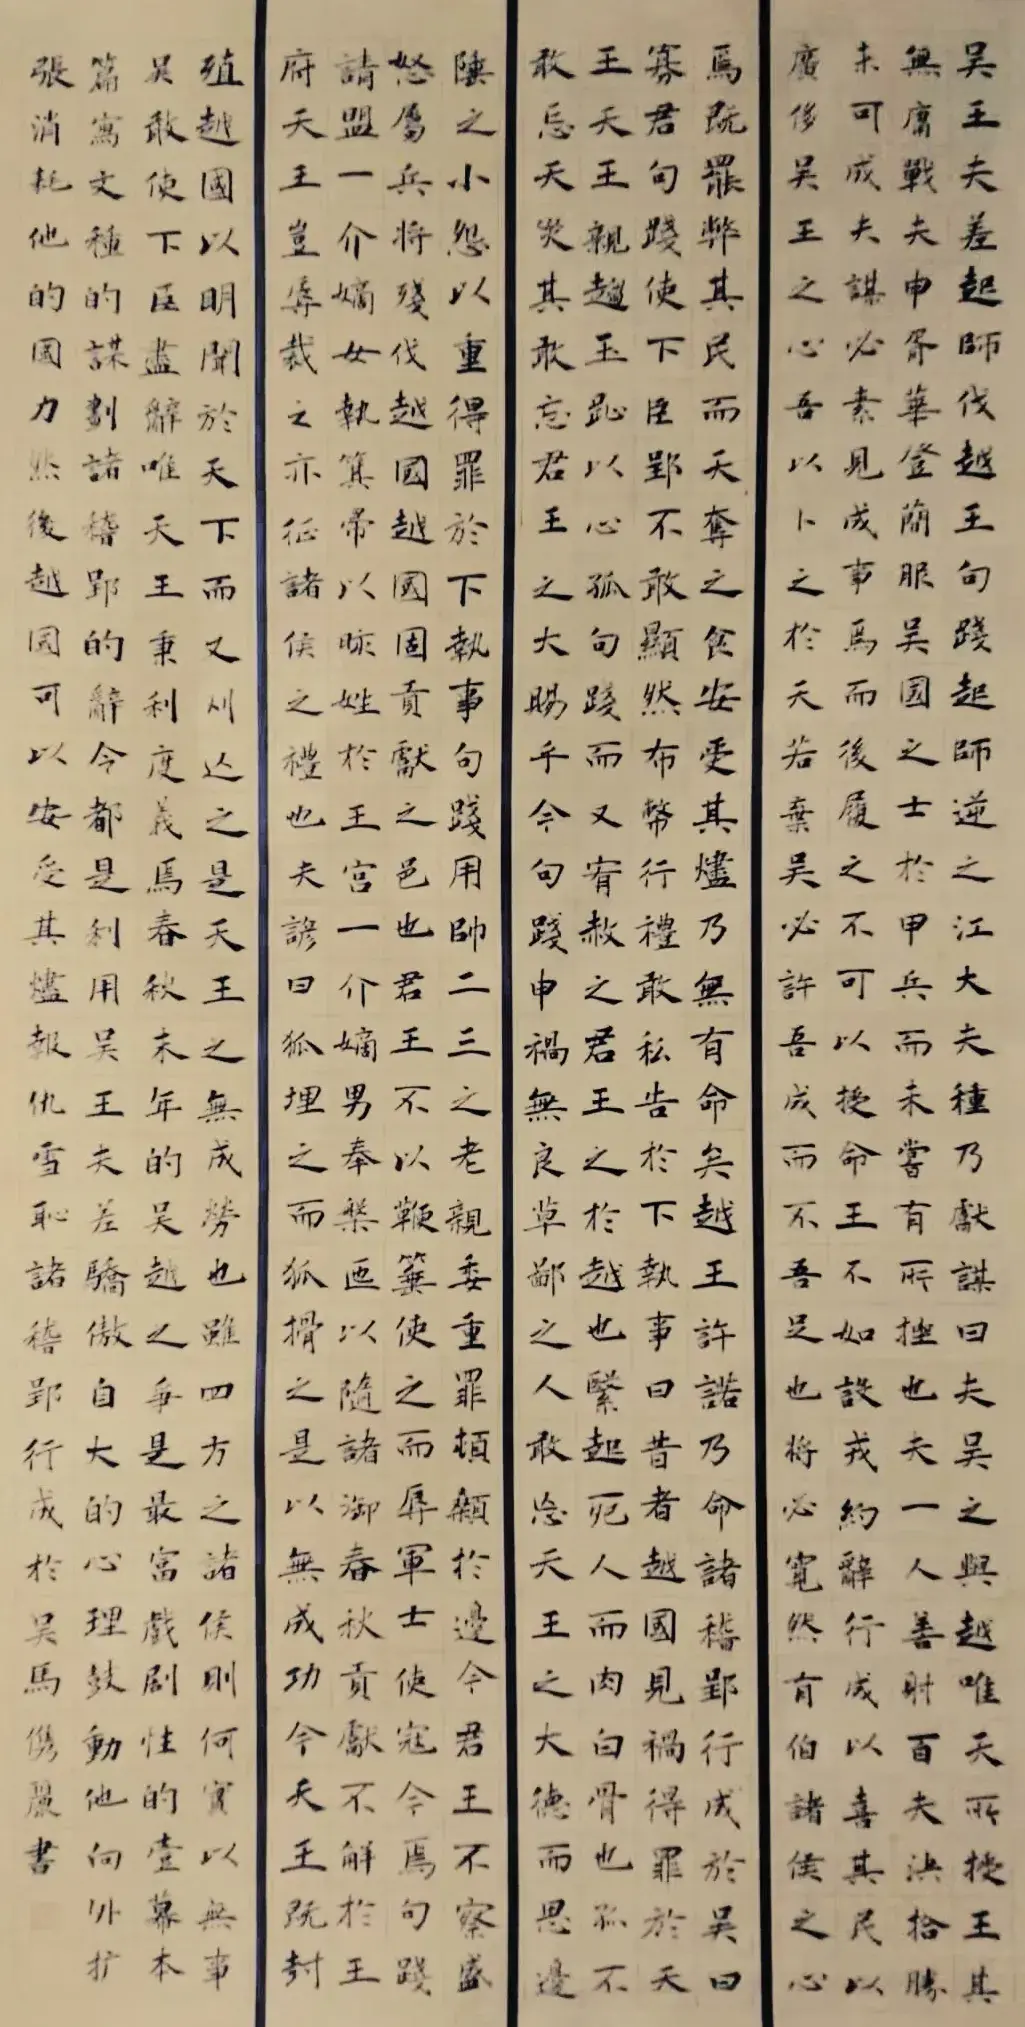 吳王夫差起師伐越王句踐起師逆之江大夫種乃獻謀曰夫吳之與越唯天所授王其
無庸戰夫申胥華登簡服吳國之士於甲兵而未嘗有所挫也夫一人善射百夫決拾勝
未可成夫謀必素見成事焉而後履之不可以授命王不如設戎約辭行成以喜其民以
廣侈吳王之心吾以卜之於天若棄吳必許吾成而不吾足也將必寬然有伯諸侯之心
焉既罷弊其民而天奪之食安受其燼乃無有命矣越王許諾乃命諸稽郢行成於吳曰
寡君句踐使下臣郢不敢顯然布幣行禮敢私告於下執事曰昔者越國見禍得罪於天
王天王親趨玉趾以心孤句踐而又宥赦之君王之於越也緊起死人而肉白骨也孤不
敢忘天災其敢忘君王之大賜乎今句踐申禍無良草鄙之人敢忘天王之大德而思邊
陲之小怨以重得罪於下執事句踐用帥二三之老親委重罪頓顙於邊今君王不察盛
怒屬兵將殘伐越國越國固貢獻之邑也君王不以鞭箠使之而辱軍士使寇令焉句踐
請盟一介嫡女執箕帚以晐姓於王宮一介嫡男奉槃匜以隨諸御春秋貢獻不解於王
府天王豈辱裁之亦征諸侯之禮也夫諺曰狐埋之而狐搰之是以無成功今天王既封
殖越國以明聞於天下而又刈亾之是天王之無成勞也雖四方之諸侯則何實以無事
吳敢使下臣盡辭唯天王秉利度義焉春秋末年的吳越之爭是最富戲劇性的壹幕本
篇寫文種的謀劃諸稽郢的辭令都是利用吳王夫差驕傲自大的心理鼓動他向外扩
張消耗他的國力然後越國可以安受其燼報仇雪恥諸稽郢行成於吳馬儁麗書